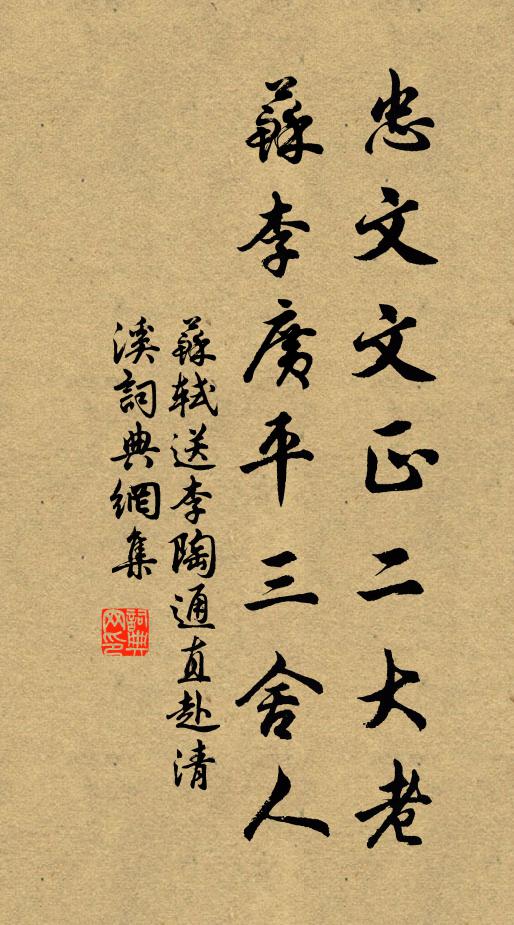 忠文文正二大老
蘇李廣平三舍人
蘇軾送李陶通直赴清
溪詞典網集
詞典
网印